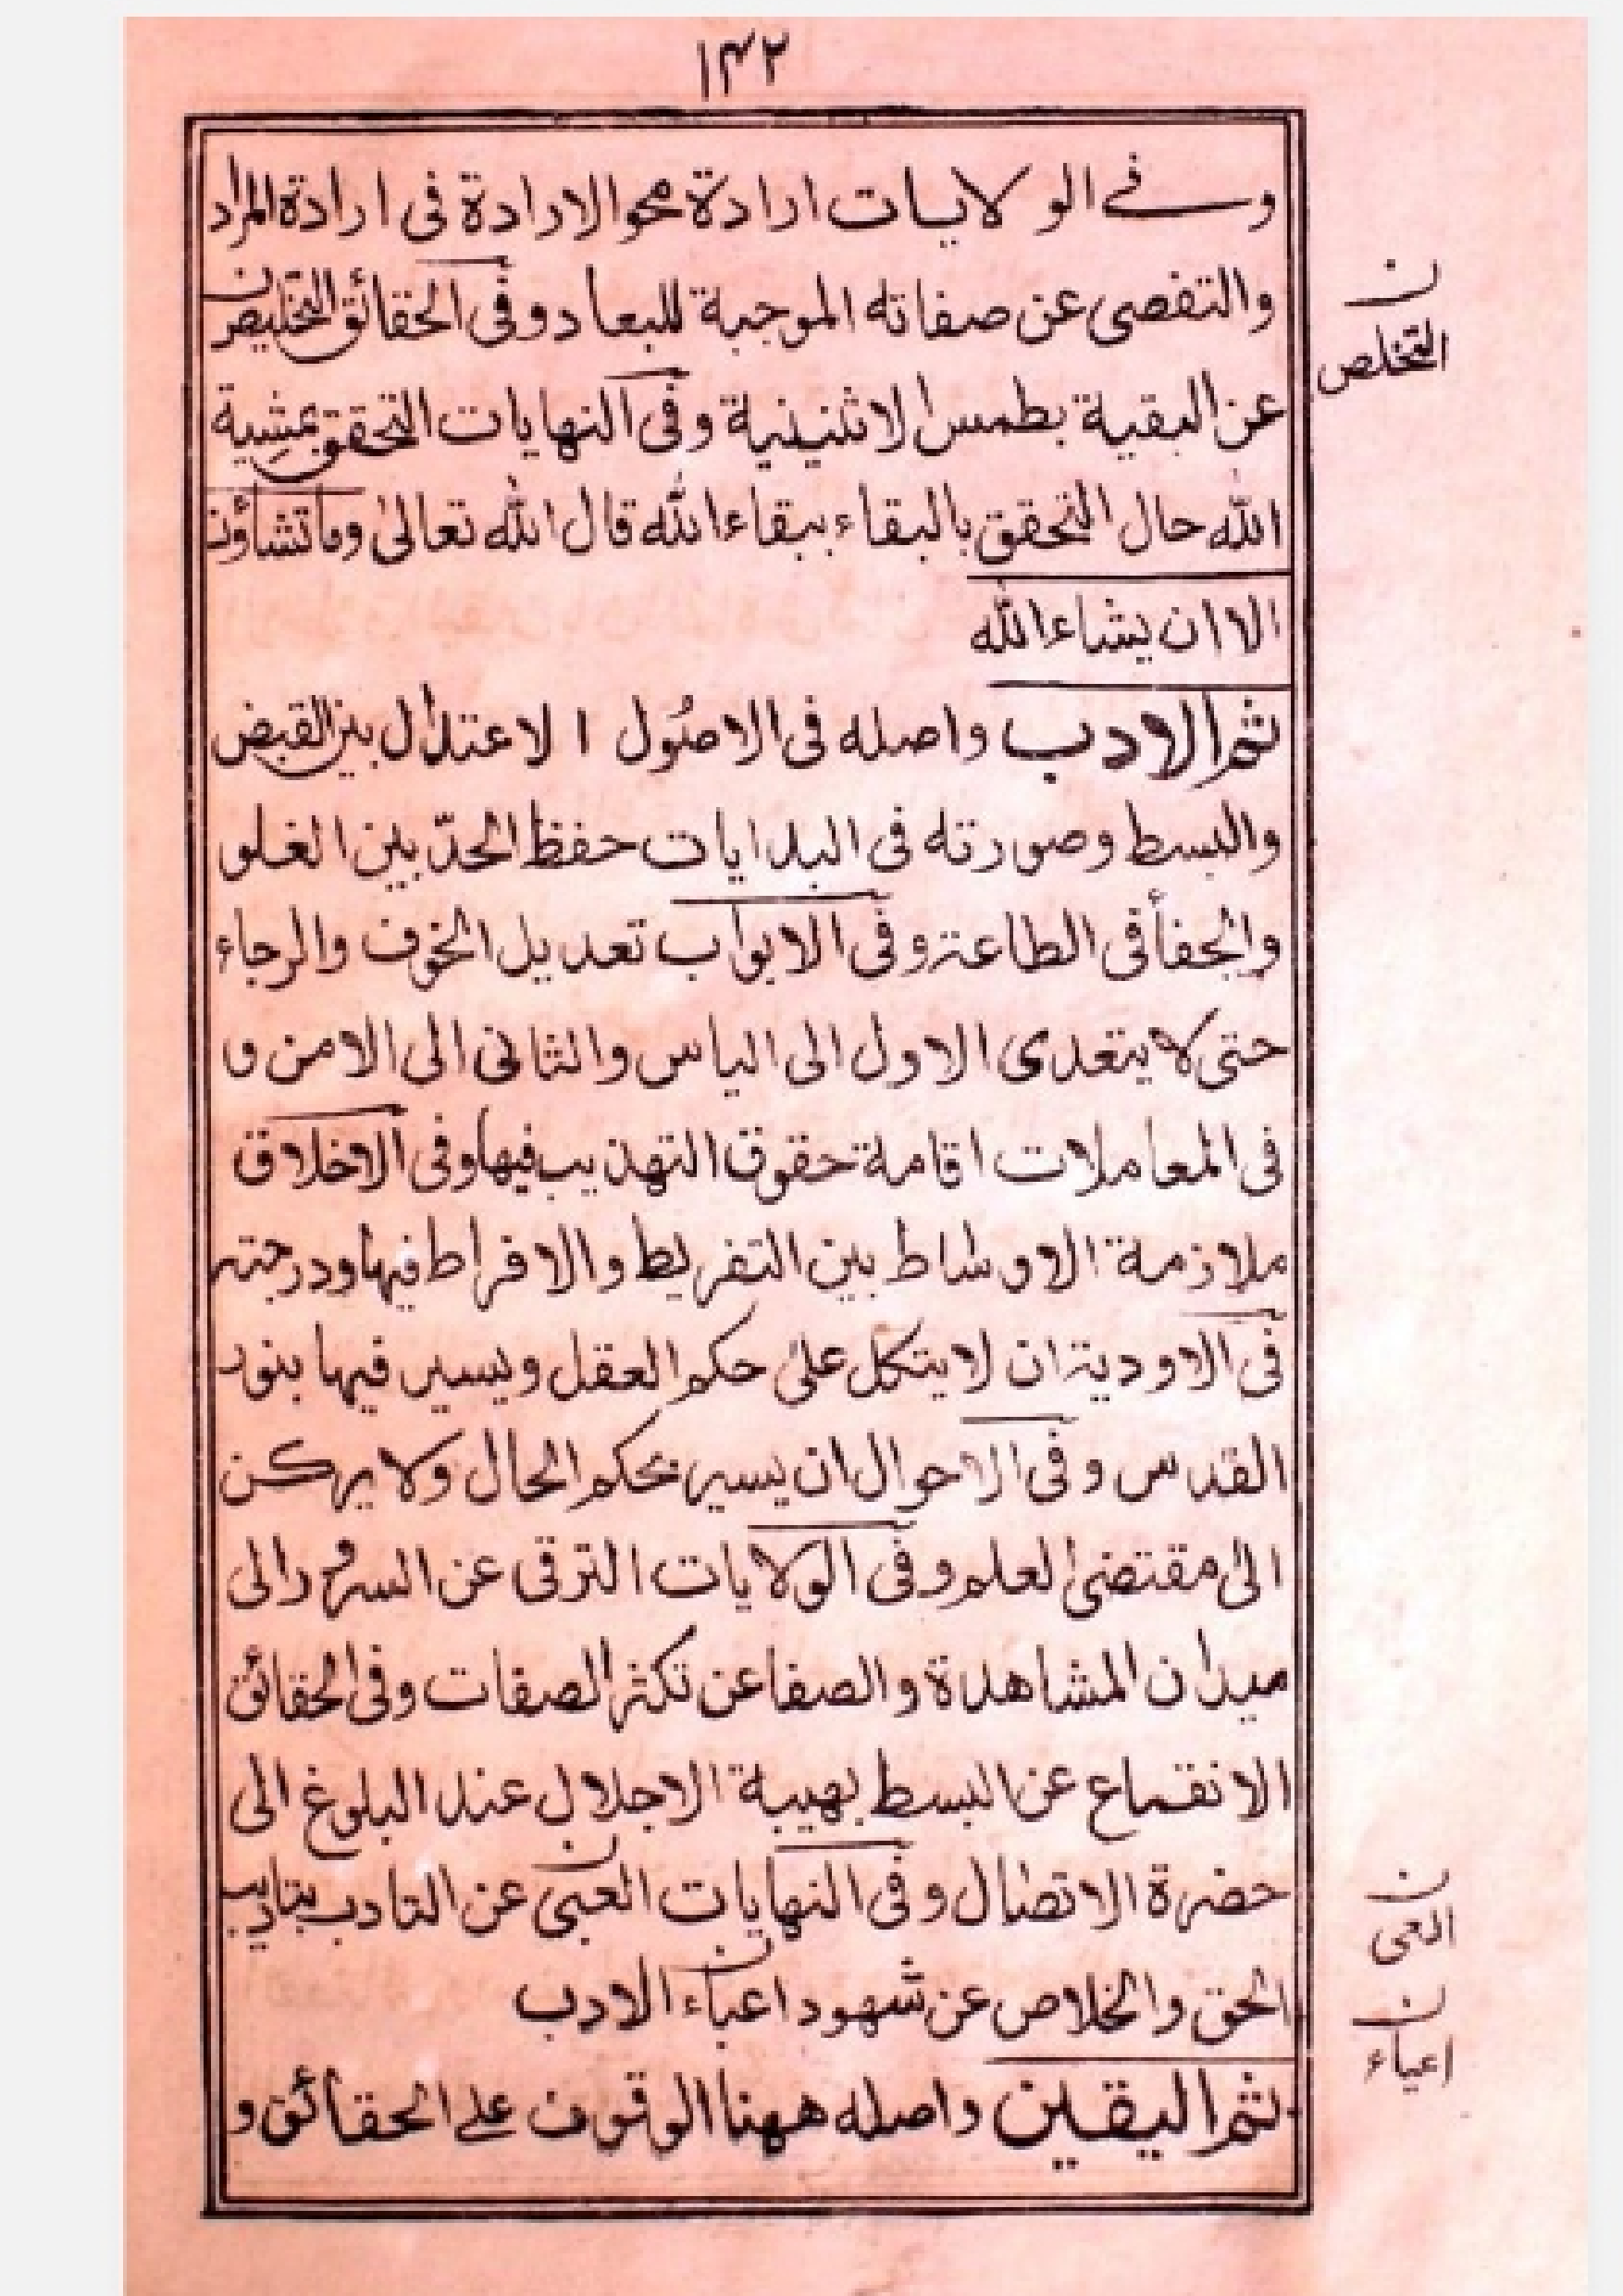 ١٣٢
وفے الولايات ارادة محو الارادة فى ارادة المراد
والتفصى عن صفاته الموجبة للبعاد وفى الحقائق التخليص
ن
التخلص
عن البقية بطمس الاثنينية وفى النهايات التحقق بمشية
الله حال التحقق بالبقاء ببقاء الله قال الله تعالىٰ وما تشاؤن
الا ان يشاء الله
ثم الادب واصله فى الاصُول الاعتدال بين القبض
والبسط وصورته فى البدايات حفظ الحدّ بين الغلو
والجفأ فى الطاعة وفى الابواب تعديل الخوف والرجاء
حتى لا يتعدى الاول الى الياس والثانى الى الامن و
فى المعاملات اقامة حقوق التهذيب فيها وفى الاخلاق
ملازمة الاوساط بين التفريط والافراط فيها ودرجته
فى الاودية ان لا يتكل علىٰ حكم العقل ويسير فيها بنور
القدس وفى الاحوال ان يسير بحكم الحال ولا يركن
الىٰ مقتضى العلم وفى الولايات الترقى عن السرور الى
ميدان المشاهدة والصفا عن تكثر الصفات وفى الحقائق
الانقماع عن البسط بهيبة الاجلال عند البلوغ الى
حضرة الاتصال وفى النهايات الغبى عن التادب بتاديب
ن
الغى
الحق والخلاص عن شهود اعباء الادب
ن
اعياء
ثم اليقين واصله ههنا الوقوف علے الحقائق و